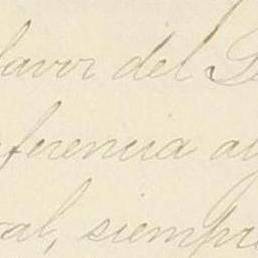 favor del
ferencia al
ral, siempre